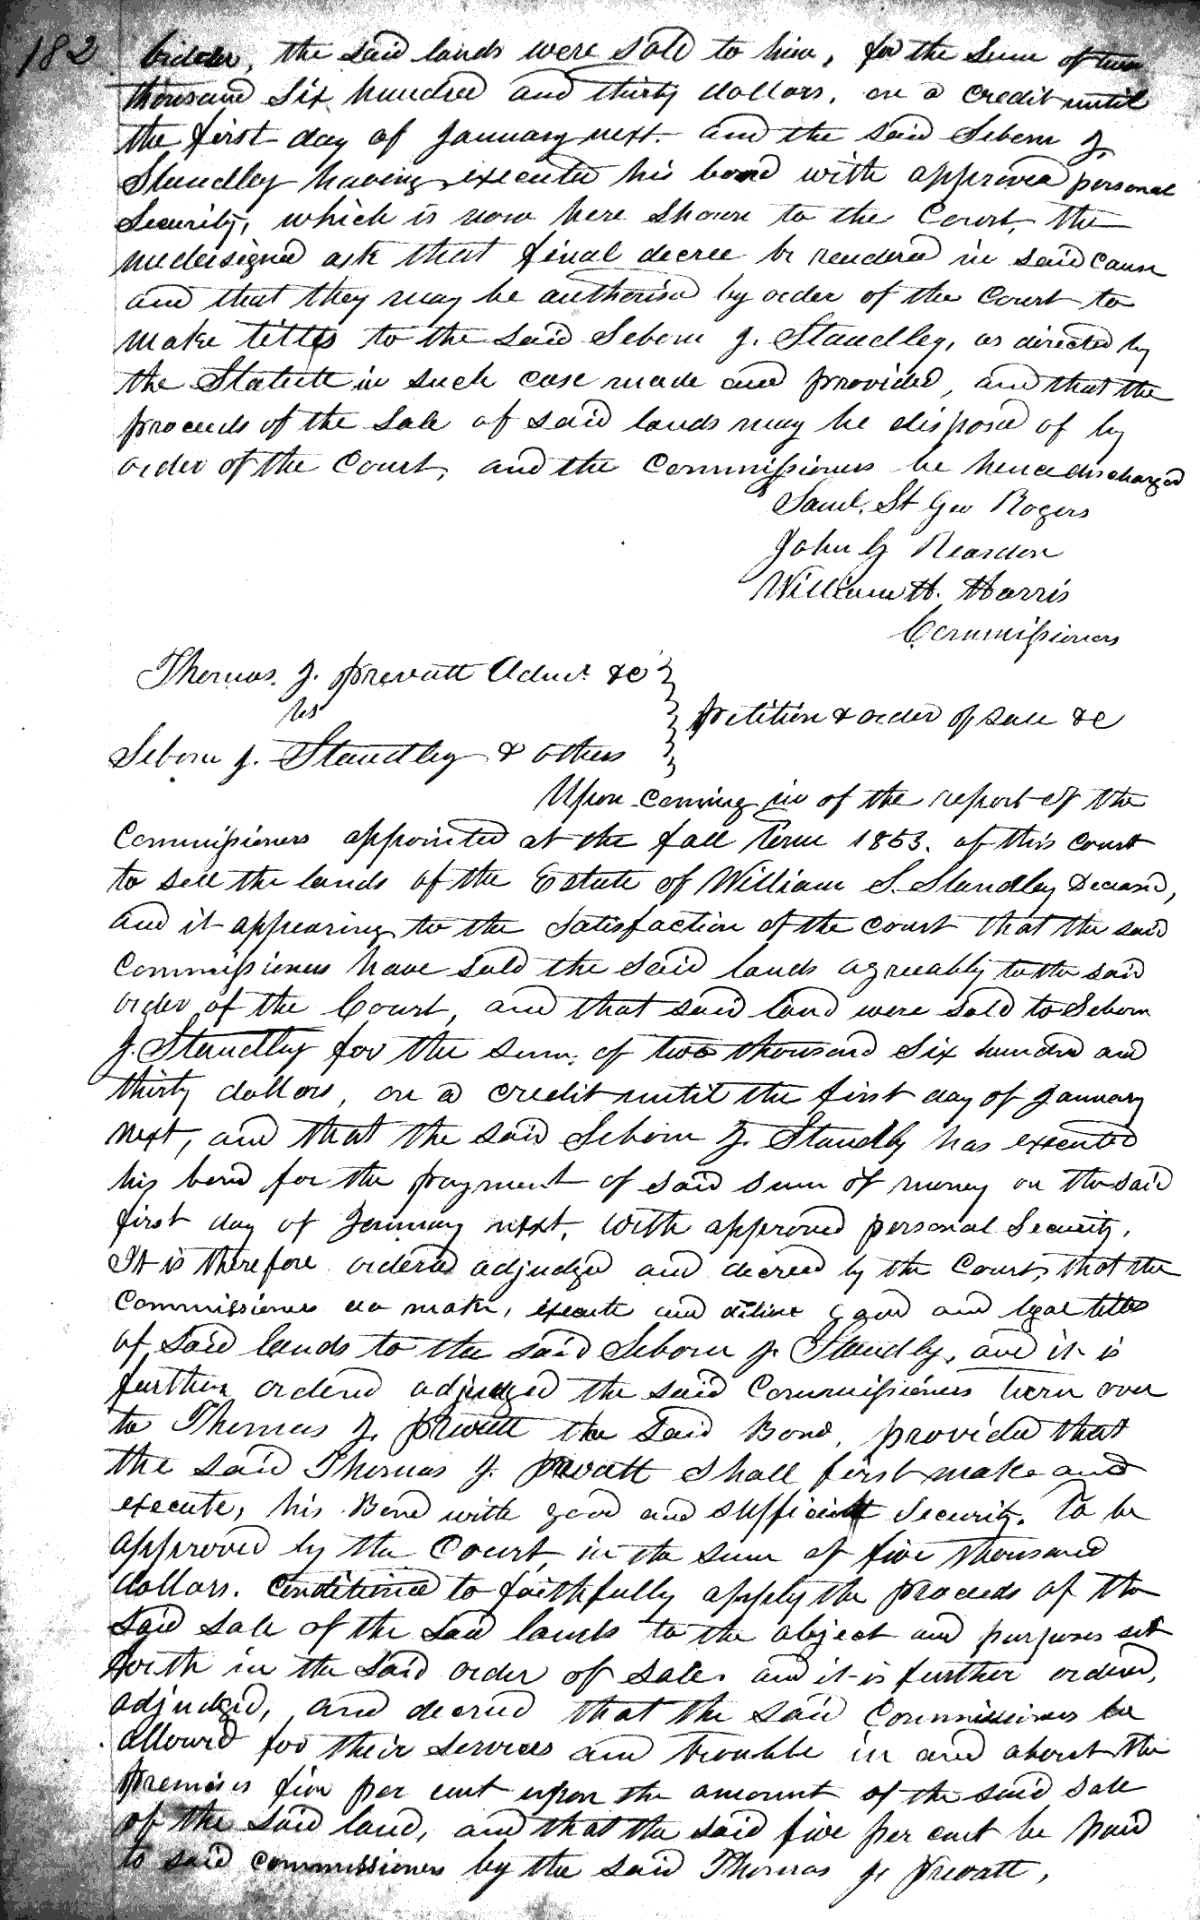 182
bidder, the said lands were sold to him, for the Sum of two
thousand Six hundred and thirty dollars, on a credit until
the first day of January next. and the said Seborn J.
Standley having executed his bond with approved personal
Security, which is now here Shown to the Court, the
undersigned ask that final decree be rendered in said cause
and that they may be authorised by order of the Court to
make tittes to the said Seborn J. Standley, as directed by
the Statute in such case made and provided, and that the
proceeds of the Sale of said lands may be disposed of by
order of the Court, and the Commissioners be hence discharged
Saml. St Geo Rogers
John G Reardon
William H. Harris
Commissioners
Thomas. J. Prevatt Admr. &c
vs
Petition & order of sale &c
Seborn J. Standley & others
Upon coming in of the report of the
Commissioners appointed at the fall Term 1853. of this Court
to sell the lands of the Estate of William S. Standley Deceased,
and it appearing to the Satisfaction of the Court that the said
Commissioners have sold the said lands agreeably to the said
order of the Court, and that said land were sold to Seborn
J. Standley for the sum. of two thousand Six hundred and
thirty dollars, on a credit until the first day of January
next, and that the said Seborn J. Standly has executed
his bond for the payment of said sum of money on the said
first day of January next, with approved personal Security.
It is therefore ordered adjudged and decreed by the Court, that the
Commissioners do make, execute and deliver good and legal titles
of said lands to the said Seborn J. Standly, and it is
further ordered adjudged the said Commissioners turn over
to Thomas J. Prevatt the said Bond, provided that
the said Thomas J. Prevatt shall first make and
execute, his Bond with good and sufficient Security. To be
approved by the Court, in the sum of five thousand
dollars. Conditioned to faithfully apply the proceeds of the
said sale of the said lands to the object and purposes set
forth in the said order of sale. and it is further ordered,
adjudged, and decreed that the said Commissioners be
allowed for their services and trouble in and about the
premises five per cent upon the amount of the said sale
of the said land, and that the said five per cent be paid
to said commissioners by the said Thomas J. Prevatt,